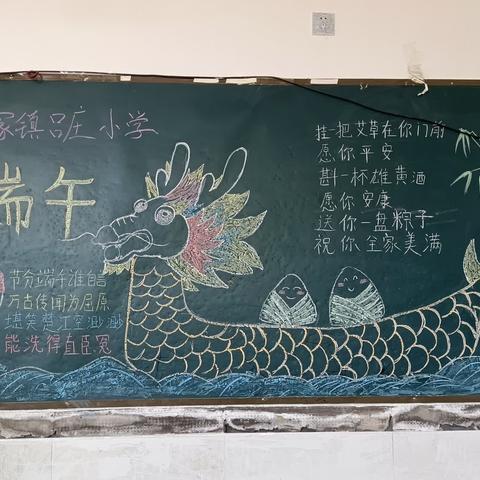 镇吕庄小学
端午
节分端午谁自言
万古传闻为屈原
堪笑楚江空渺渺
能洗得直臣冤
挂一把艾草在你门前
愿你平安
斟一杯雄黄酒
愿你安康
送你一盘粽子
祝你全家美满